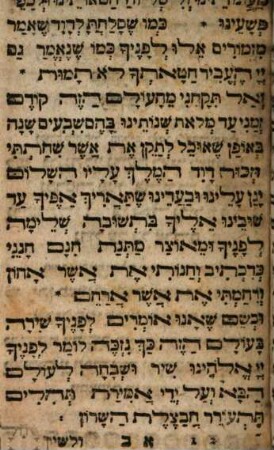 פְשָׁעֵינוּ · כְּמוֹ שֶׁסָּלַחְתָּ לְדָוִד שֶׁאָמַר
מִזְמוֹרִים אֵלּוּ לְפָנֶיךָ כְּמוֹ שֶׁנֶּאֱמַר גַּם
יְיָ הֶעֱבִיר חַטָּאתְךָ לֹא תָמוּת ·
וְאַל תִּקָּחֵנִי מֵהָעוֹלָם הַזֶּה קוֹדֶם
זְמַנִּי עַד מְלֹאת שְׁנוֹתֵינוּ בָּהֶם שִׁבְעִים שָׁנָה
בְּאוֹפֶן שֶׁאוּכַל לְתַקֵּן אֶת אֲשֶׁר שִׁחַתְתִּי
וּזְכוּת דָּוִד הַמֶּלֶךְ עָלָיו הַשָּׁלוֹם
יָגֵן עָלֵינוּ וּבַעֲדֵינוּ שֶׁתַּאֲרִיךְ אַפֶּיךָ עַד
שׁוּבֵינוּ אֵלֶיךָ בִּתְשׁוּבָה שְׁלֵימָה
לְפָנֶיךָ וּמֵאוֹצַר מַתְּנַת חִנָּם חָנֵּנִי
כְּדִכְתִיב וְחַנּוֹתִי אֶת אֲשֶׁר אָחוֹן
וְרִחַמְתִּי אֶת אֲשֶׁר אֲרַחֵם ·
וּכְשֵׁם שֶׁאָנוּ אוֹמְרִים לְפָנֶיךָ שִׁירָה
בָּעוֹלָם הַזֶּה כָּךְ נִזְכֶּה לוֹמַר לְפָנֶיךָ
יְיָ אֱלֹהֵינוּ שִׁיר וּשְׁבָחָה לָעוֹלָם
הַבָּא וְעַל יְדֵי אֲמִירַת תְּהִלִּים
תִּתְעוֹרֵר חֲבַצֶּלֶת הַשָּׁרוֹן ·
א ב ולשיר